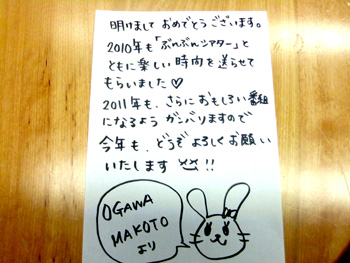 明けまして おめでとうございます。
2010年も「ぶんぶんシアター」と
ともに楽しい時間を送らせて
もらいました♡
2011年も、さらにおもしろい番組
になるよう ガンバりますので
今年も、どうぞ よろしく お願い
いたします !!
OGAWA
MAKOTO
より